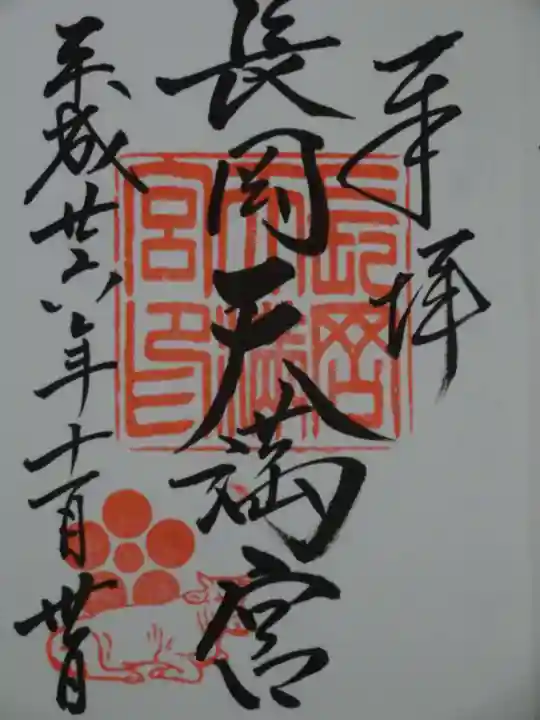 奉拝
長岡天満宮
長岡天満宮印
平成廿六年十一月卅日